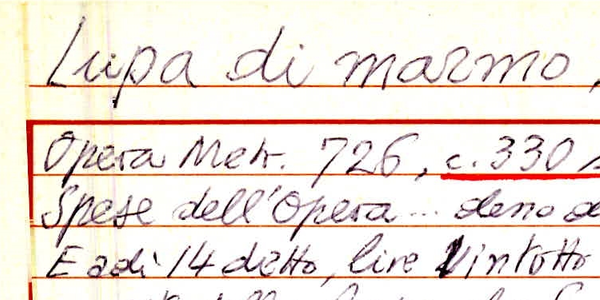 Lupa di marmo,
Opera Metr. 726, c. 330
Spese dell'Opera ... deno
E adì 14 detto, lire Vintotto